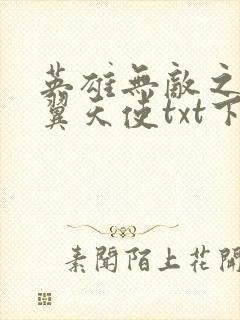 英雄無敵之
翼天使txt下
素聞陌上花開